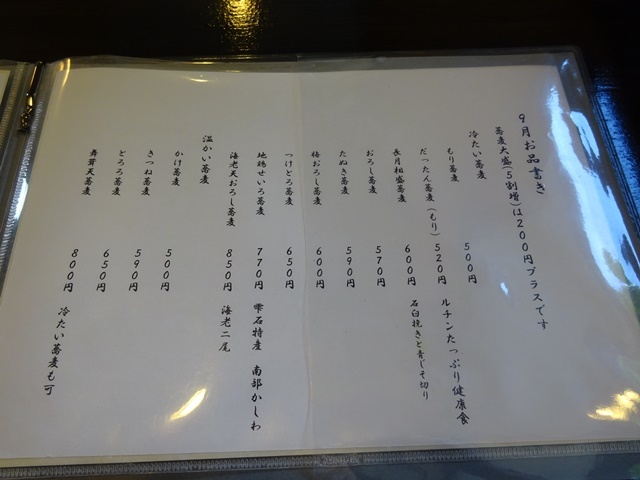 9月お品書き
蕎麦大盛(5割増)は200円プラスです
冷たい蕎麦
もり蕎麦 500円
だったん蕎麦(もり) 520円 ルチンたっぷり健康食
長月相盛蕎麦 600円 石臼挽きと青じそ切り
おろし蕎麦 570円
たぬき蕎麦 590円
梅おろし蕎麦 600円
つけとろ蕎麦 650円
地鶏せいろ蕎麦 770円 雫石特産 南部かしわ
海老天おろし蕎麦 850円 海老二尾
温かい蕎麦
かけ蕎麦 500円
きつね蕎麦 590円
とろろ蕎麦 650円
舞茸天蕎麦 800円 冷たい蕎麦も可